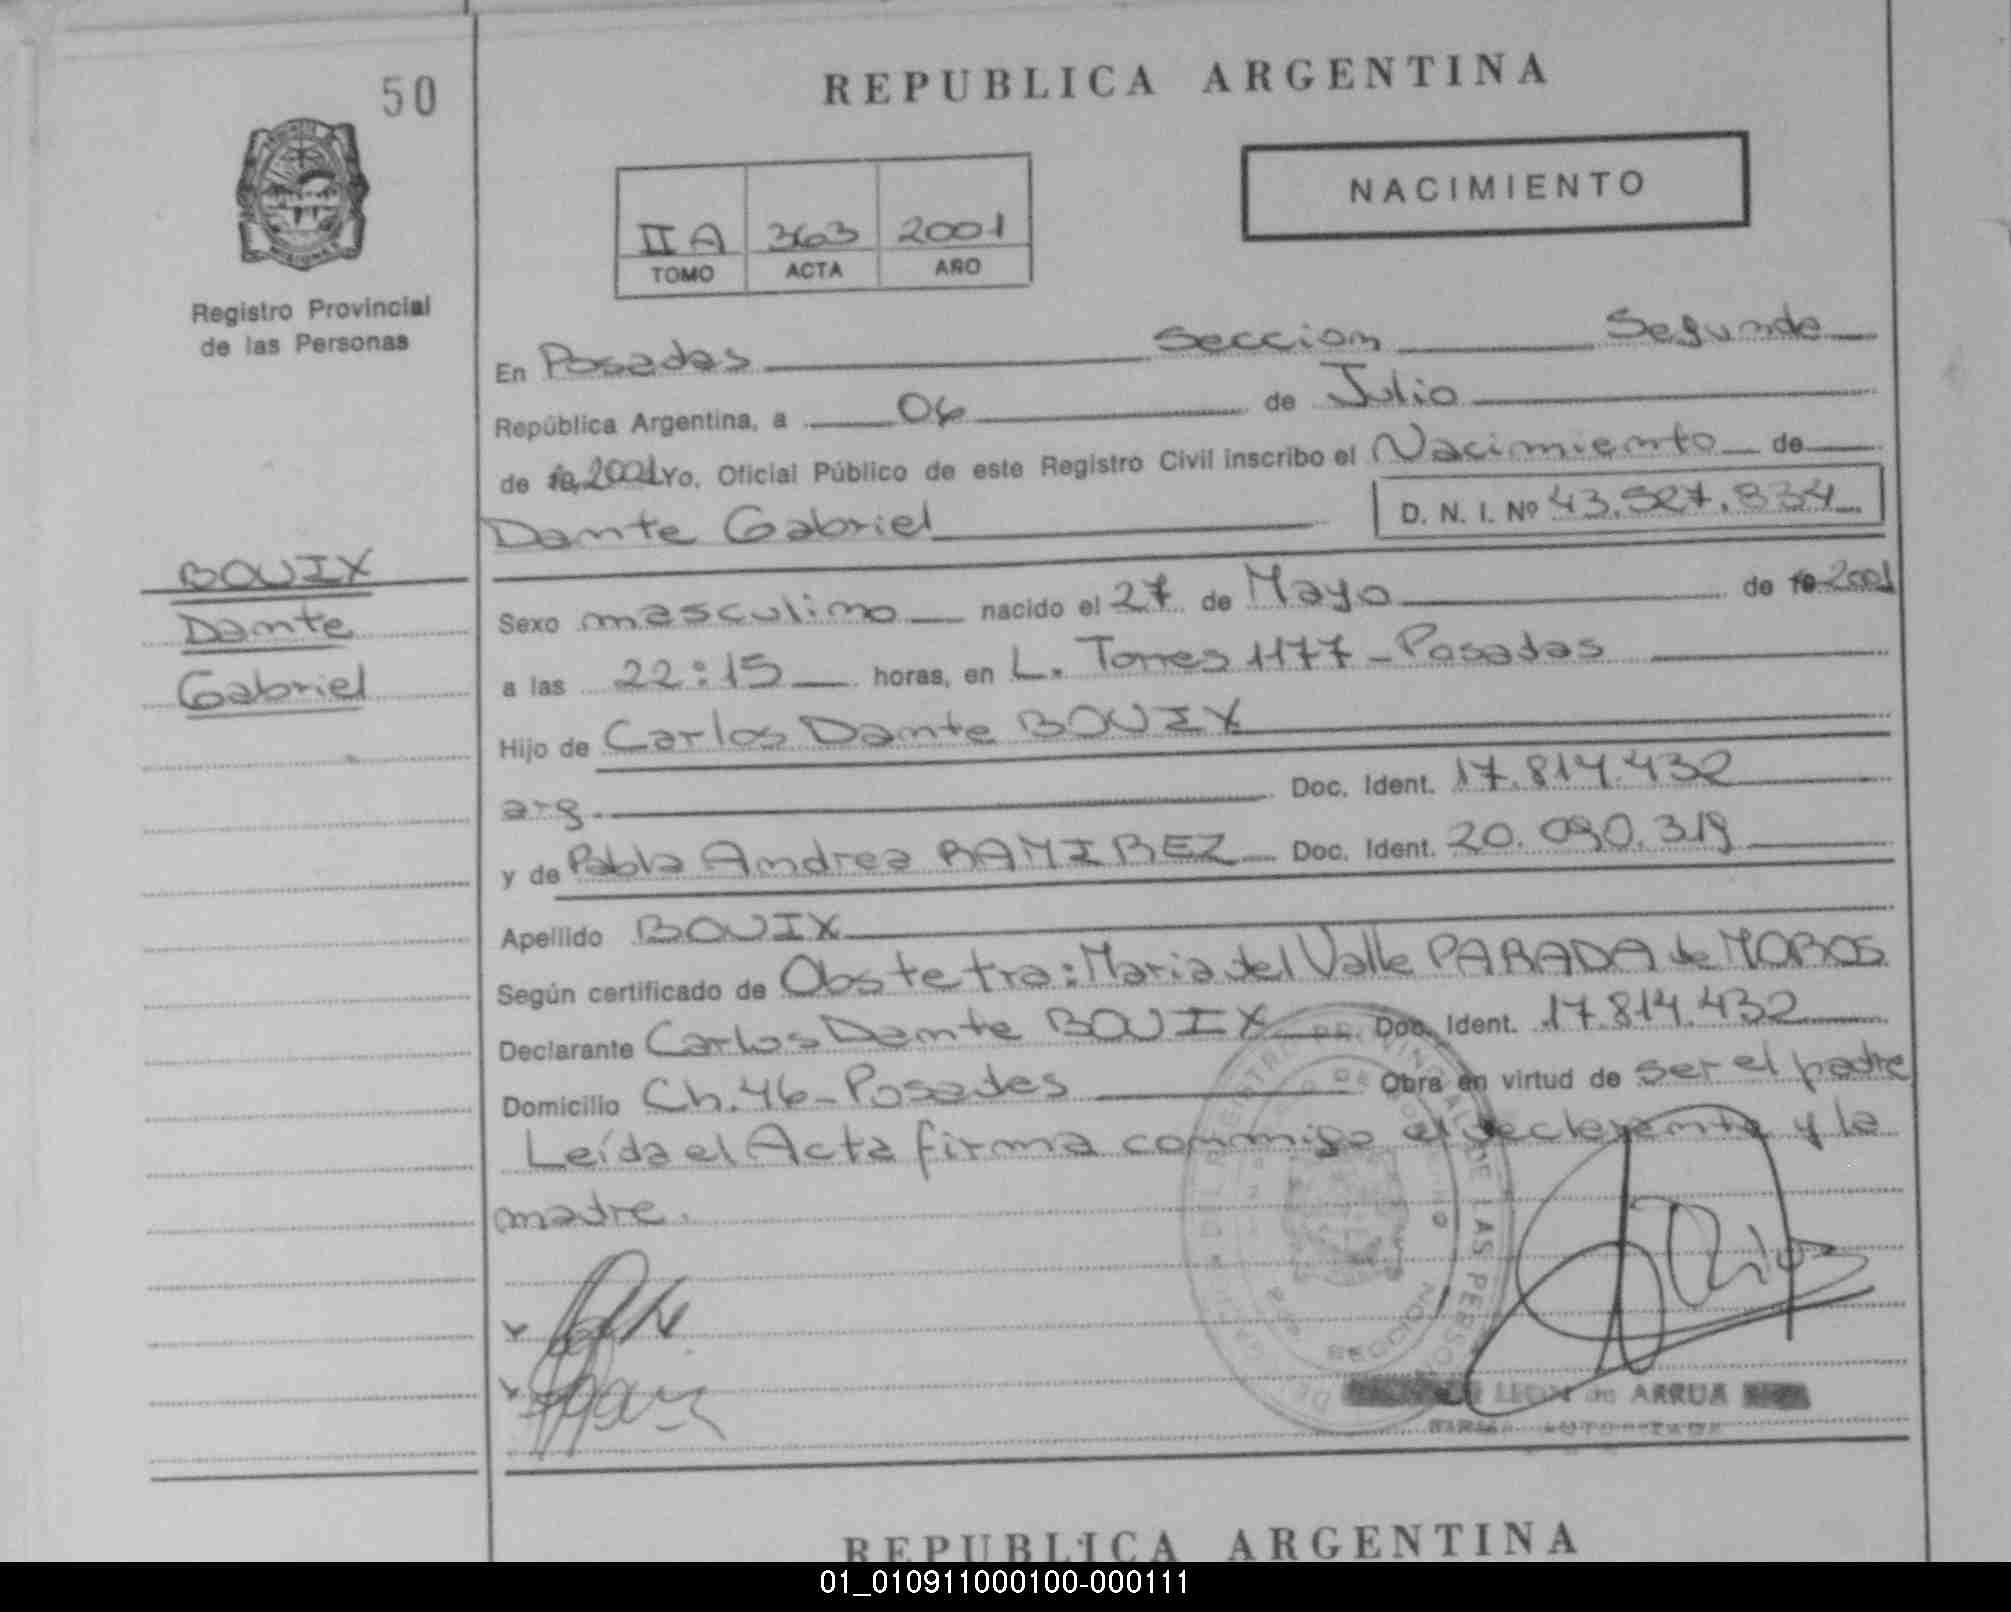 50
REPUBLICA ARGENTINA
NACIMIENTO
II A 363 2001
TOMO ACTA AÑO
Registro Provincial
de las Personas
En Posadas Seccion Segunda
República Argentina, a 06 de Julio
de 2001 Yo, Oficial Público de este Registro Civil inscribo el Nacimiento de
Dante Gabriel D. N. I. Nº 43.527.834
BOUIX
Dante
Gabriel
Sexo masculino nacido el 27 de Mayo de 2001
a las 22:15 horas, en L. Torres 1177 - Posadas
Hijo de Carlos Dante BOUIX
arg. Doc. Ident. 17.814.432
y de Pabla Andrea RAMIREZ Doc. Ident. 20.090.319
Apellido BOUIX
Según certificado de Obstetra: Maria del Valle PARADA de MOROS
Declarante Carlos Dante BOUIX Doc. Ident. 17.814.432
Domicilio Ch. 46 - Posadas Obra en virtud de ser el padre
Leída el Acta firma conmigo el declarante y la
madre.
LEON de ARRUA
FIRMA AUTORIZADA
REPUBLICA ARGENTINA
01_010911000100-000111